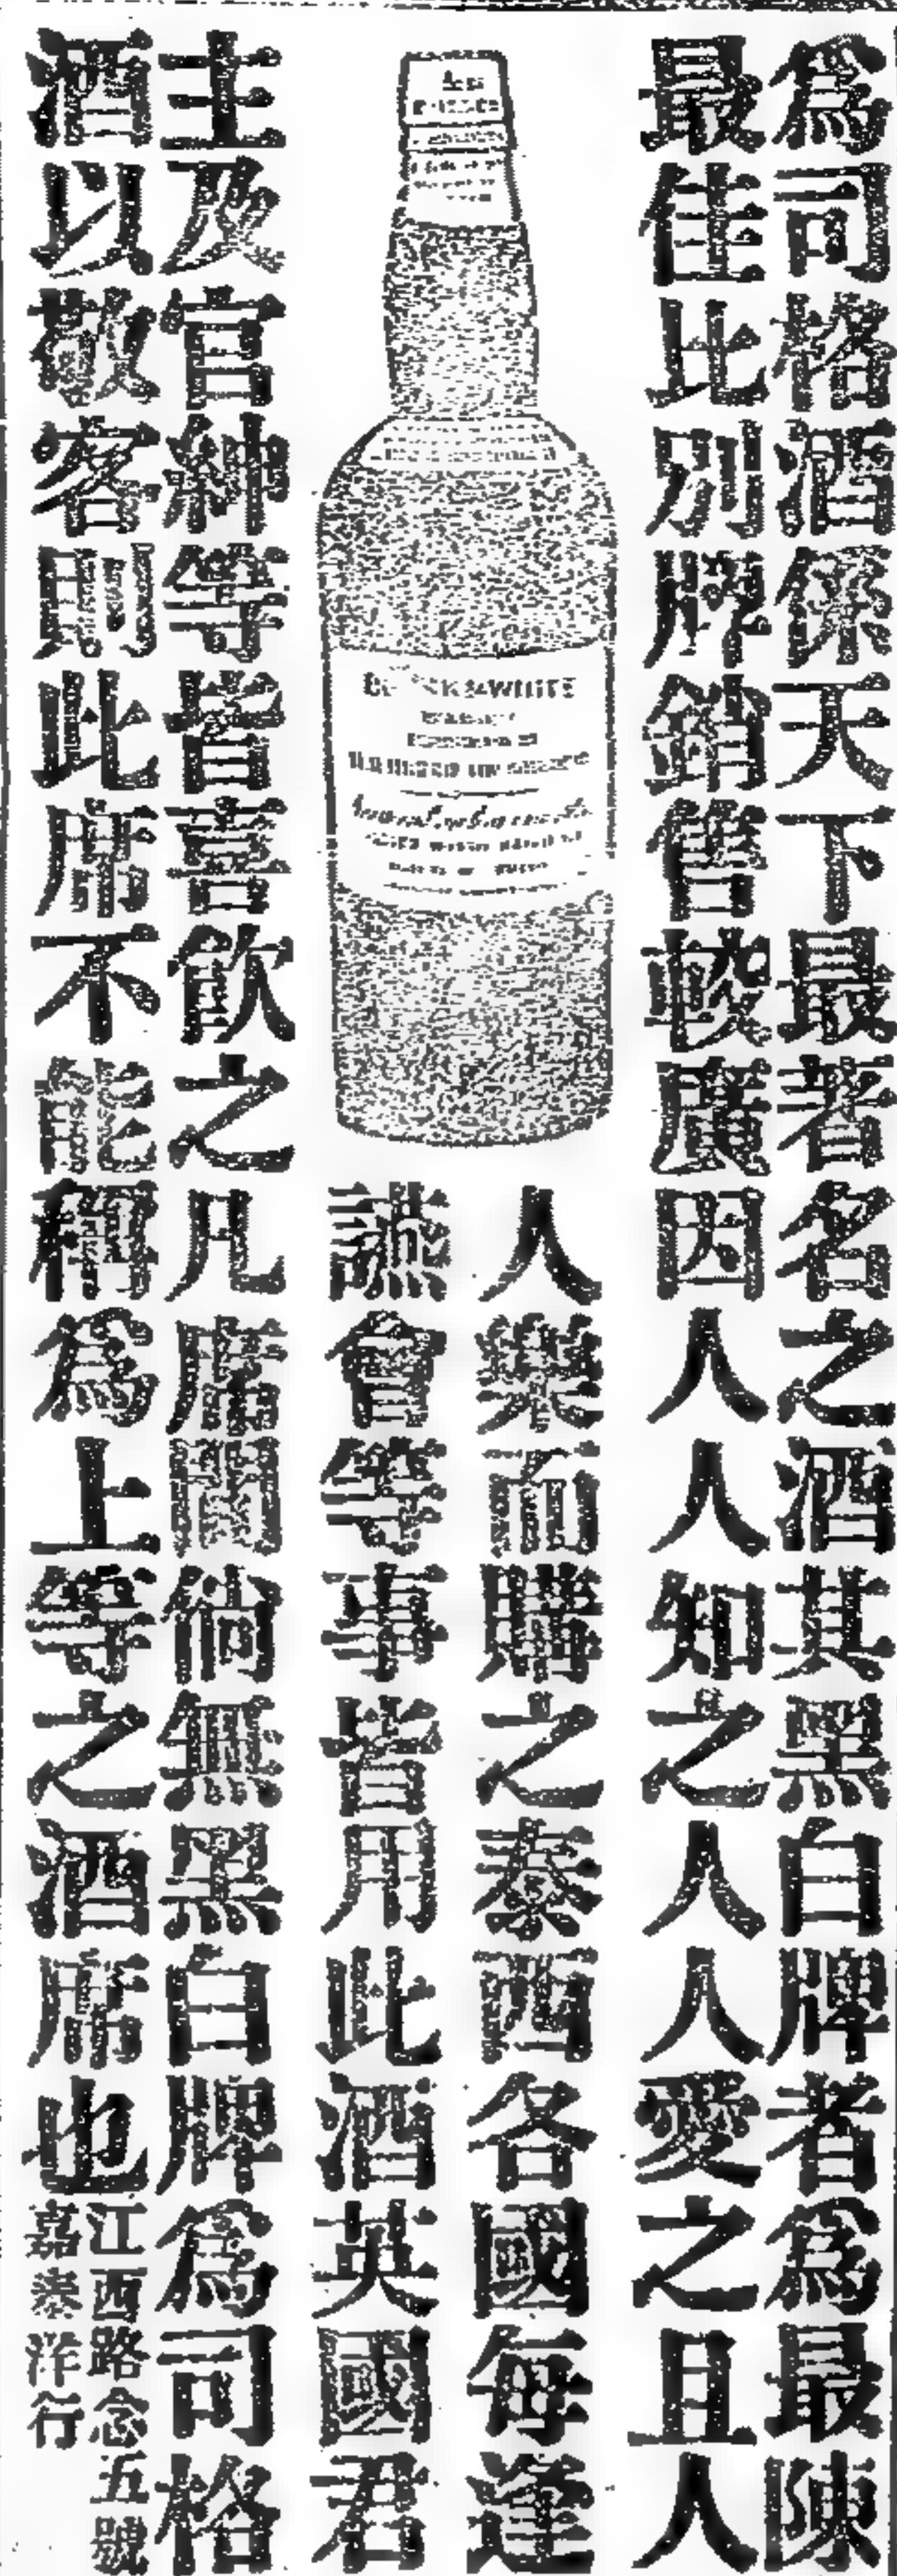 為司格酒係天下最著名之酒其黑白牌者為最陳
最佳比別牌銷售較廣因人人知之人人愛之且人
人樂而購之泰西各國每逢
讌會等事皆用此酒英國君
主及官紳等皆喜飲之凡席間倘無黑白牌為司格
酒以敬客則此席不能稱為上等之酒席也
江西路念五號
嘉泰洋行
&WHITE